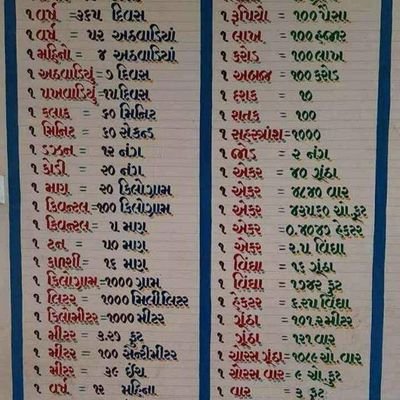 ૧ વર્ષ = ૩૬૫ દિવસ
૧ વર્ષ = ૫૨ અઠવાડિયાં
૧ મહિનો = ૪ અઠવાડિયાં
૧ અઠવાડિયું = ૭ દિવસ
૧ પખવાડિયું = ૧૫ દિવસ
૧ કલાક = ૬૦ મિનિટ
૧ મિનિટ = ૬૦ સેકન્ડ
૧ ડઝન = ૧૨ નંગ
૧ કોડી = ૨૦ નંગ
૧ મણ = ૨૦ કિલોગ્રામ
૧ કિવન્ટલ = ૧૦૦ કિલોગ્રામ
૧ કિવન્ટલ = ૫ મણ
૧ ટન = ૫૦ મણ
૧ કળશી = ૧૬ મણ
૧ કિલોગ્રામ = ૧૦૦૦ ગ્રામ
૧ લિટર = ૧૦૦૦ મિલીલિટર
૧ કિલોમીટર = ૧૦૦૦ મીટર
૧ મીટર = ૩.૨૭ ફૂટ
૧ મીટર = ૧૦૦ સેન્ટીમીટર
૧ મીટર = ૩૯ ઈંચ
૧ વર્ષ = ૧૨ મહિના
૧ રૂપિયો = ૧૦૦ પૈસા
૧ લાખ = ૧૦૦ હજાર
૧ કરોડ = ૧૦૦ લાખ
૧ અબજ = ૧૦૦ કરોડ
૧ દશક = ૧૦
૧ શતક = ૧૦૦
૧ સહસ્ત્રાંશ = ૧૦૦૦
૧ જોડ = ૨ નંગ
૧ એકર = ૪૦ ગુંઠા
૧ એકર = ૪૮૪૦ વાર
૧ એકર = ૪૩૫૬૦ ચો.ફૂટ
૧ એકર = ૦.૪૦૪૭ હેકટર
૧ એકર = ૨.૫ વિંઘા
૧ વિંઘા = ૧૬ ગુંઠા
૧ વિંઘા = ૧૭૪૨ ફૂટ
૧ હેકટર = ૬.૨૫ વિંઘા
૧ ગુંઠા = ૧૦૧.૨ મીટર
૧ ગુંઠા = ૧૨૧ વાર
૧ ચોરસ ગુંઠા = ૧૦૮૯ ચો.વાર
૧ ચોરસ વાર = ૯ ચો.ફૂટ
૧ વાર = ૩ ફૂટ